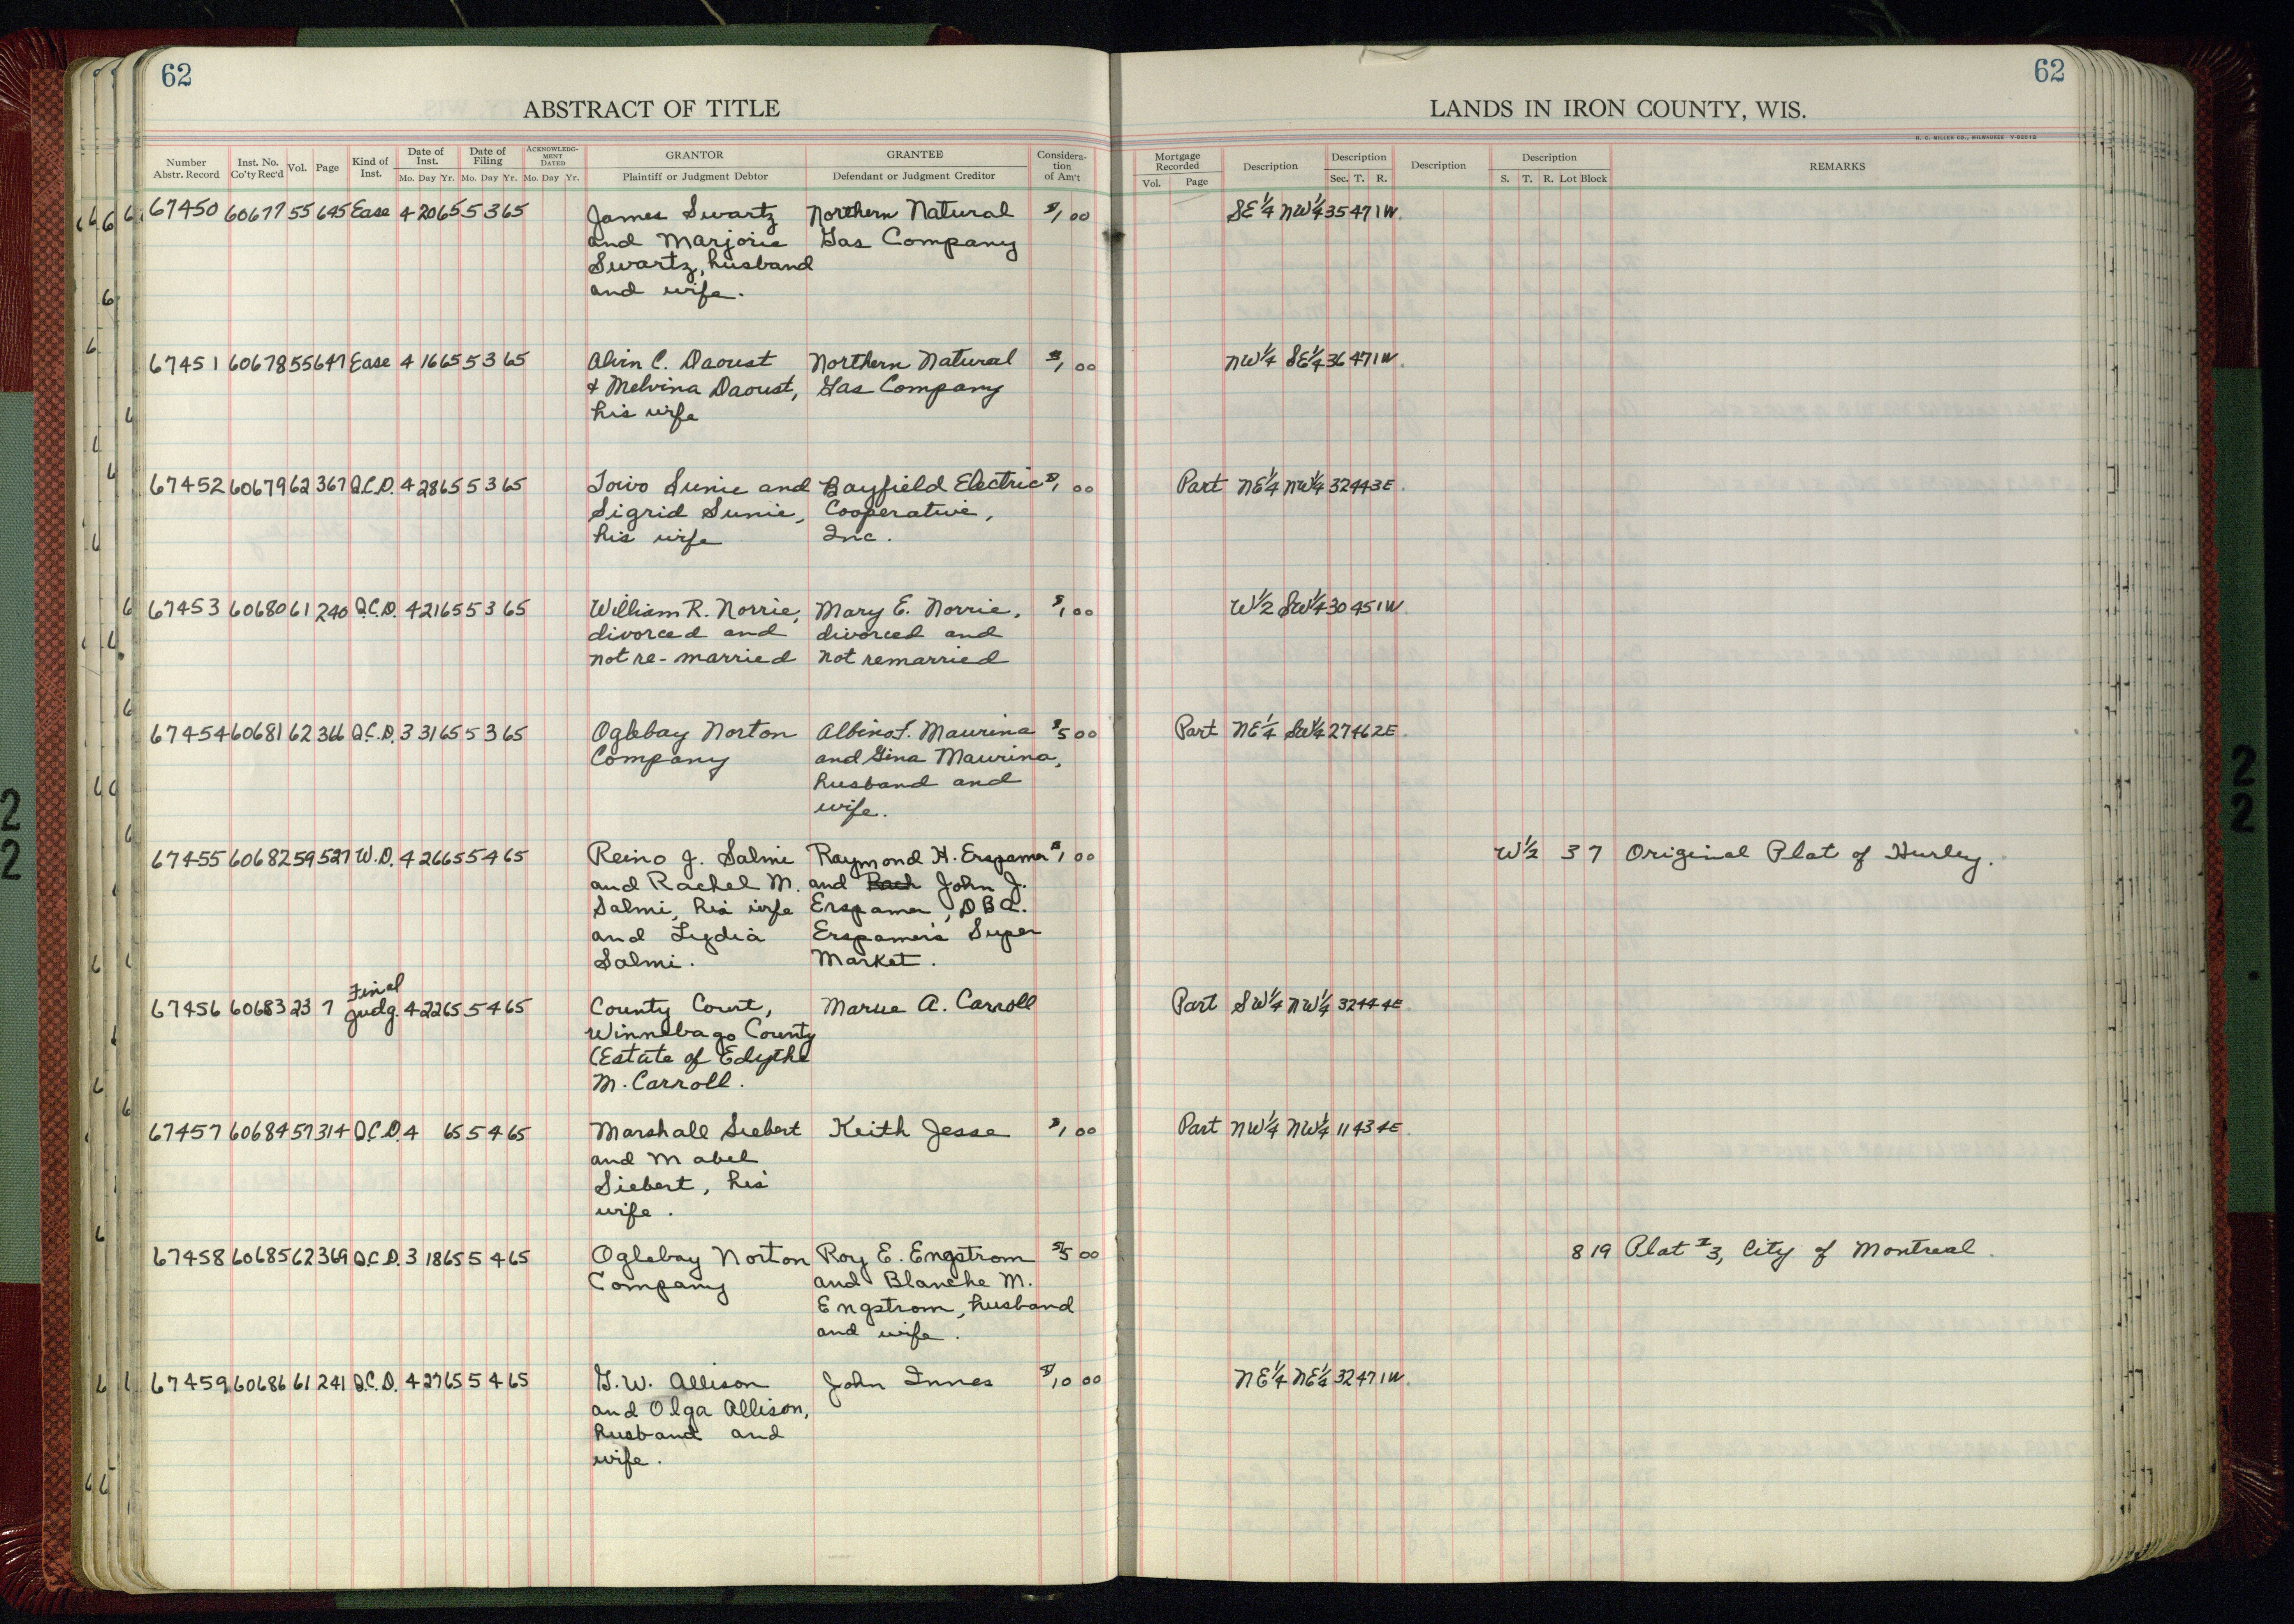 62
62
ABSTRACT OF TITLE
LANDS IN IRON COUNTY, WIS.
H. C. MILLER CO., MILWAUKEE
Number Abstr. Record
Inst. No. Co'ty Rec'd
Vol.
Page
Kind of Inst.
Date of Inst.
Mo. Day Yr.
Date of Filing
Mo. Day Yr.
ACKNOWLEDGMENT DATED
Mo. Day Yr.
GRANTOR
Plaintiff or Judgment Debtor
GRANTEE
Defendant or Judgment Creditor
Consideration of Am't
Mortgage Recorded
Vol. Page
Description
Description
Sec. T. R.
Description
Description
S. T. R. Lot Block
REMARKS
67450 60677 55 645 Ease 4 20 65 5 3 65 James Swartz Northern Natural $1 00 SE 1/4 NW 1/4 35 47 1W.
and Marjorie Gas Company
Swartz, husband
and wife.
67451 60678 55 647 Ease 4 16 65 5 3 65 Alvin C. Daoust Northern Natural $1 00 NW 1/4 SE 1/4 36 47 1W.
& Melvina Daoust, Gas Company
his wife
67452 60679 62 367 Q.C.D. 4 28 65 5 3 65 Toivo Sunie and Bayfield Electric $1 00 Part NE 1/4 NW 1/4 32 44 3E.
Sigrid Sunie, Cooperative,
his wife Inc.
67453 60680 61 240 Q.C.D. 4 21 65 5 3 65 William R. Norrie, Mary E. Norrie, $1 00 W 1/2 SW 1/4 30 45 1W.
divorced and divorced and
not re-married not remarried
67454 60681 62 366 Q.C.D. 3 31 65 5 3 65 Oglebay Norton Albino Maurina $5 00 Part NE 1/4 SW 1/4 27 46 2E.
Company and Gina Maurina,
husband and
wife.
67455 60682 59 527 W.D. 4 26 65 5 4 65 Reino J. Salmi Raymond H. Erspamer $1 00 W 1/2 3 7 Original Plat of Hurley.
and Rachel M. and Rach John J.
Salmi, his wife Erspamer, DBA.
and Lydia Erspamer's Super
Salmi. Market.
67456 60683 23 7 Final Judg. 4 22 65 5 4 65 County Court, A. Carroll Part SW 1/4 NW 1/4 32 44 4E.
Winnebago County
(Estate of Edythe
M. Carroll.
67457 60684 57 314 Q.C.D. 4 65 5 4 65 Marshall Siebert Keith Jesse $1 00 Part NW 1/4 NW 1/4 11 43 4E.
and Mabel
Siebert, his
wife.
67458 60685 62 369 Q.C.D. 3 18 65 5 4 65 Oglebay Norton Roy E. Engstrom $5 00 8 19 Plat #3, City of Montreal.
Company and Blanche M.
Engstrom, husband
and wife.
67459 60686 61 241 Q.C.D. 4 27 65 5 4 65 G.W. Allison John Innes $10 00 NE 1/4 NE 1/4 32 47 1W.
and Olga Allison,
husband and
wife.
22
22